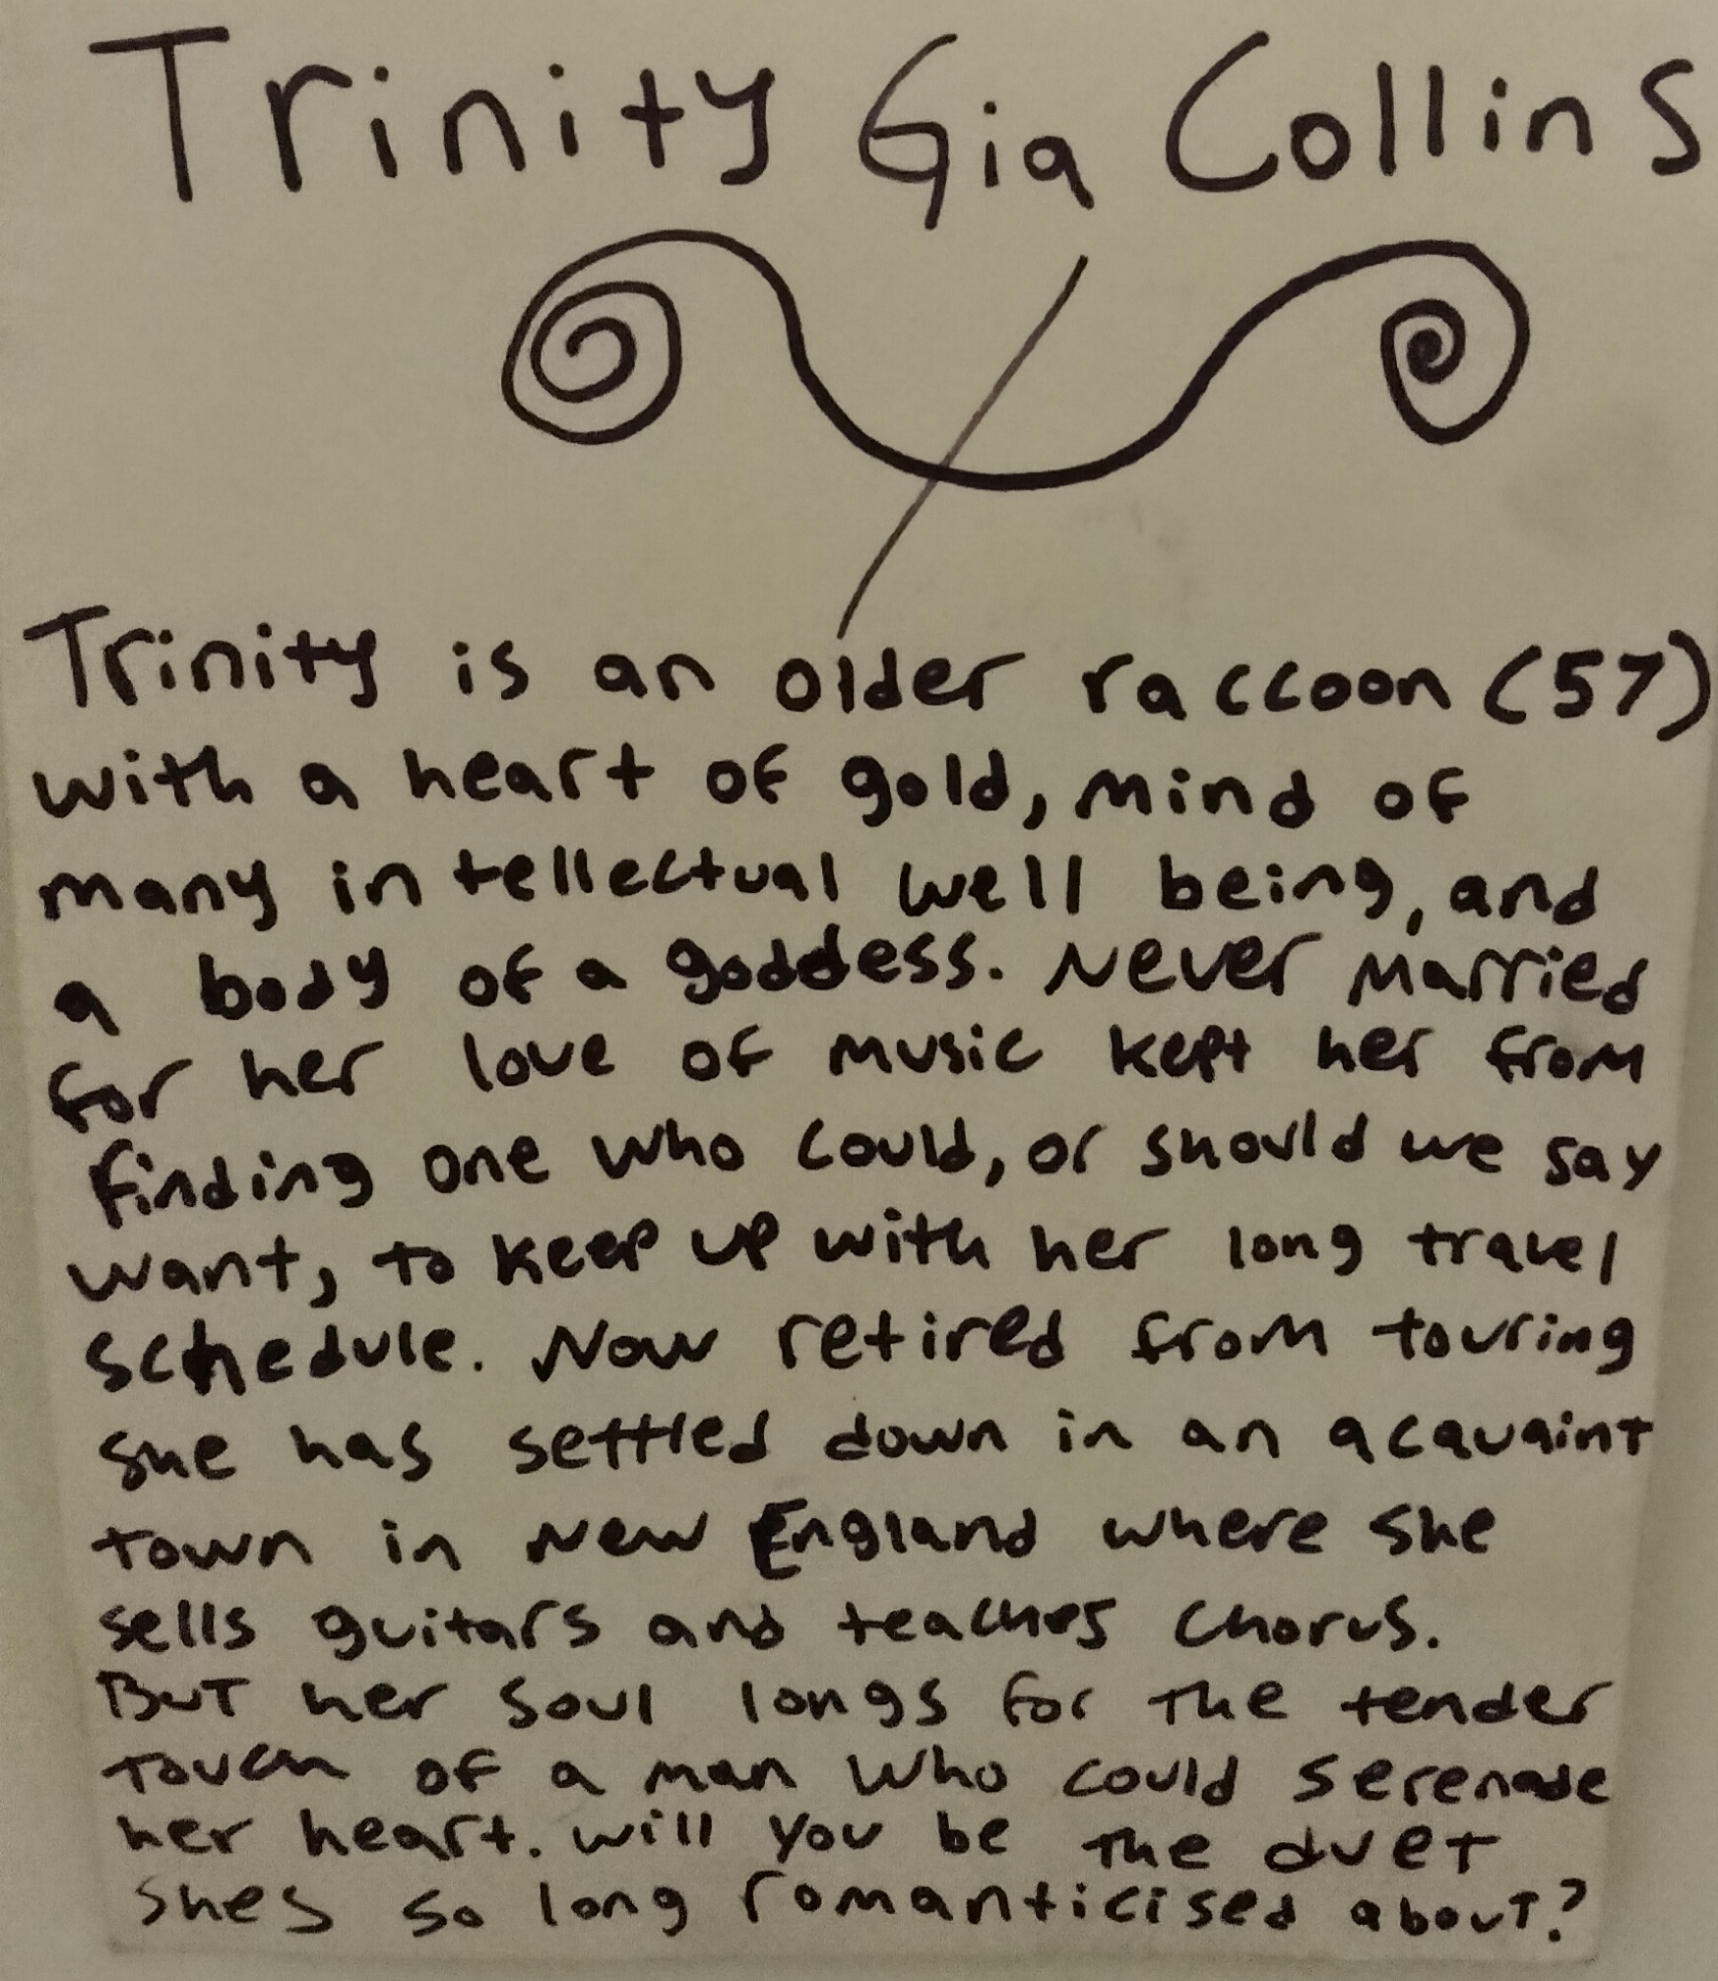 Trinity Gia Collins
Trinity is an older raccoon (57)
with a heart of gold, mind of
many intellectual well being, and
a body of a goddess. Never married
for her love of music kept her from
finding one who could, or should we say
want, to keep up with her long travel
schedule. Now retired from touring
she has settled down in an acquaint
town in New England where she
sells guitars and teaches chorus.
But her soul longs for the tender
touch of a man who could serenade
her heart. will you be the duet
shes so long romanticised about?